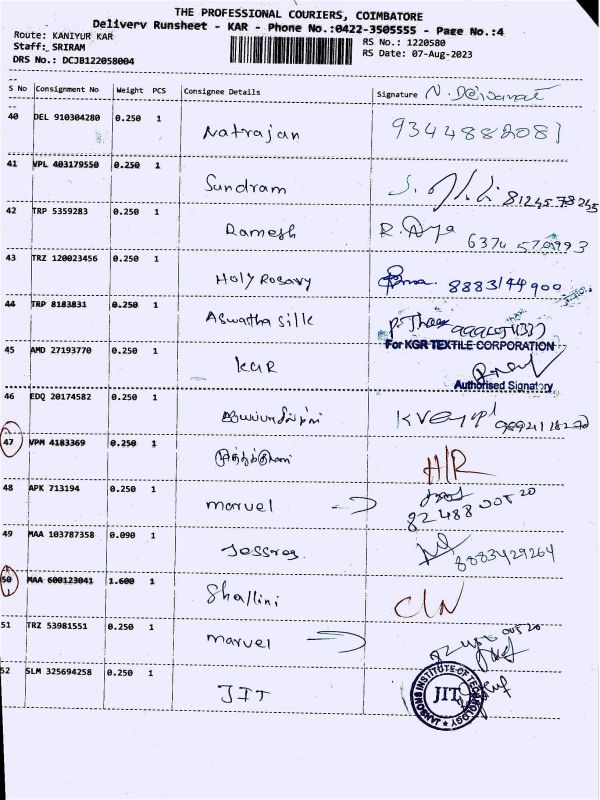 THE PROFESSIONAL COURIERS, COIMBATORE
Delivery Runsheet - KAR - Phone No.:0422-3505555 - Page No.:4
Route: KANIYUR KAR RS No.: 1220580
Staff: SRIRAM RS Date: 07-Aug-2023
DRS No.: DCJB122058004
S No Consignment No Weight PCS Consignee Details Signature
40 DEL 910304280 0.250 1 Natrajan 9344882081
41 VPL 403179550 0.250 1 Sundram 8124578245
42 TRP 5359283 0.250 1 Ramesh 6374 570993
43 TRZ 120023456 0.250 1 Holy Rosary 8883144900
44 TRP 8183831 0.250 1 Aswatha Silk
For KGR TEXTILE CORPORATION
45 AMD 27193770 0.250 1 KGR
Authorised Signatory
46 EDQ 20174582 0.250 1
47 VPM 4183369 0.250 1 H/R
48 APK 713194 0.250 1 marvel
49 MAA 103787358 0.090 1 8883429264
50 MAA 600123041 1.600 1 Shallini C/N
51 TRZ 53981551 0.250 1 marvel
52 SLM 325694258 0.250 1 JIT
JANSONS INSTITUTE OF TECHNOLOGY
JIT